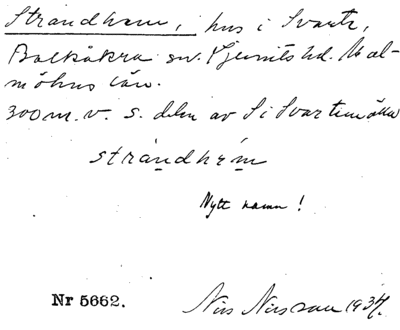 Strandhem, hus i Svarte,
Balkåkra sn. Ljunits hd. Mal-
möhus län.
300 m. v. s. delen av S i Svarte
strandhem
Nytt namn!
Nr 5662. Nils Nilsson 1934.